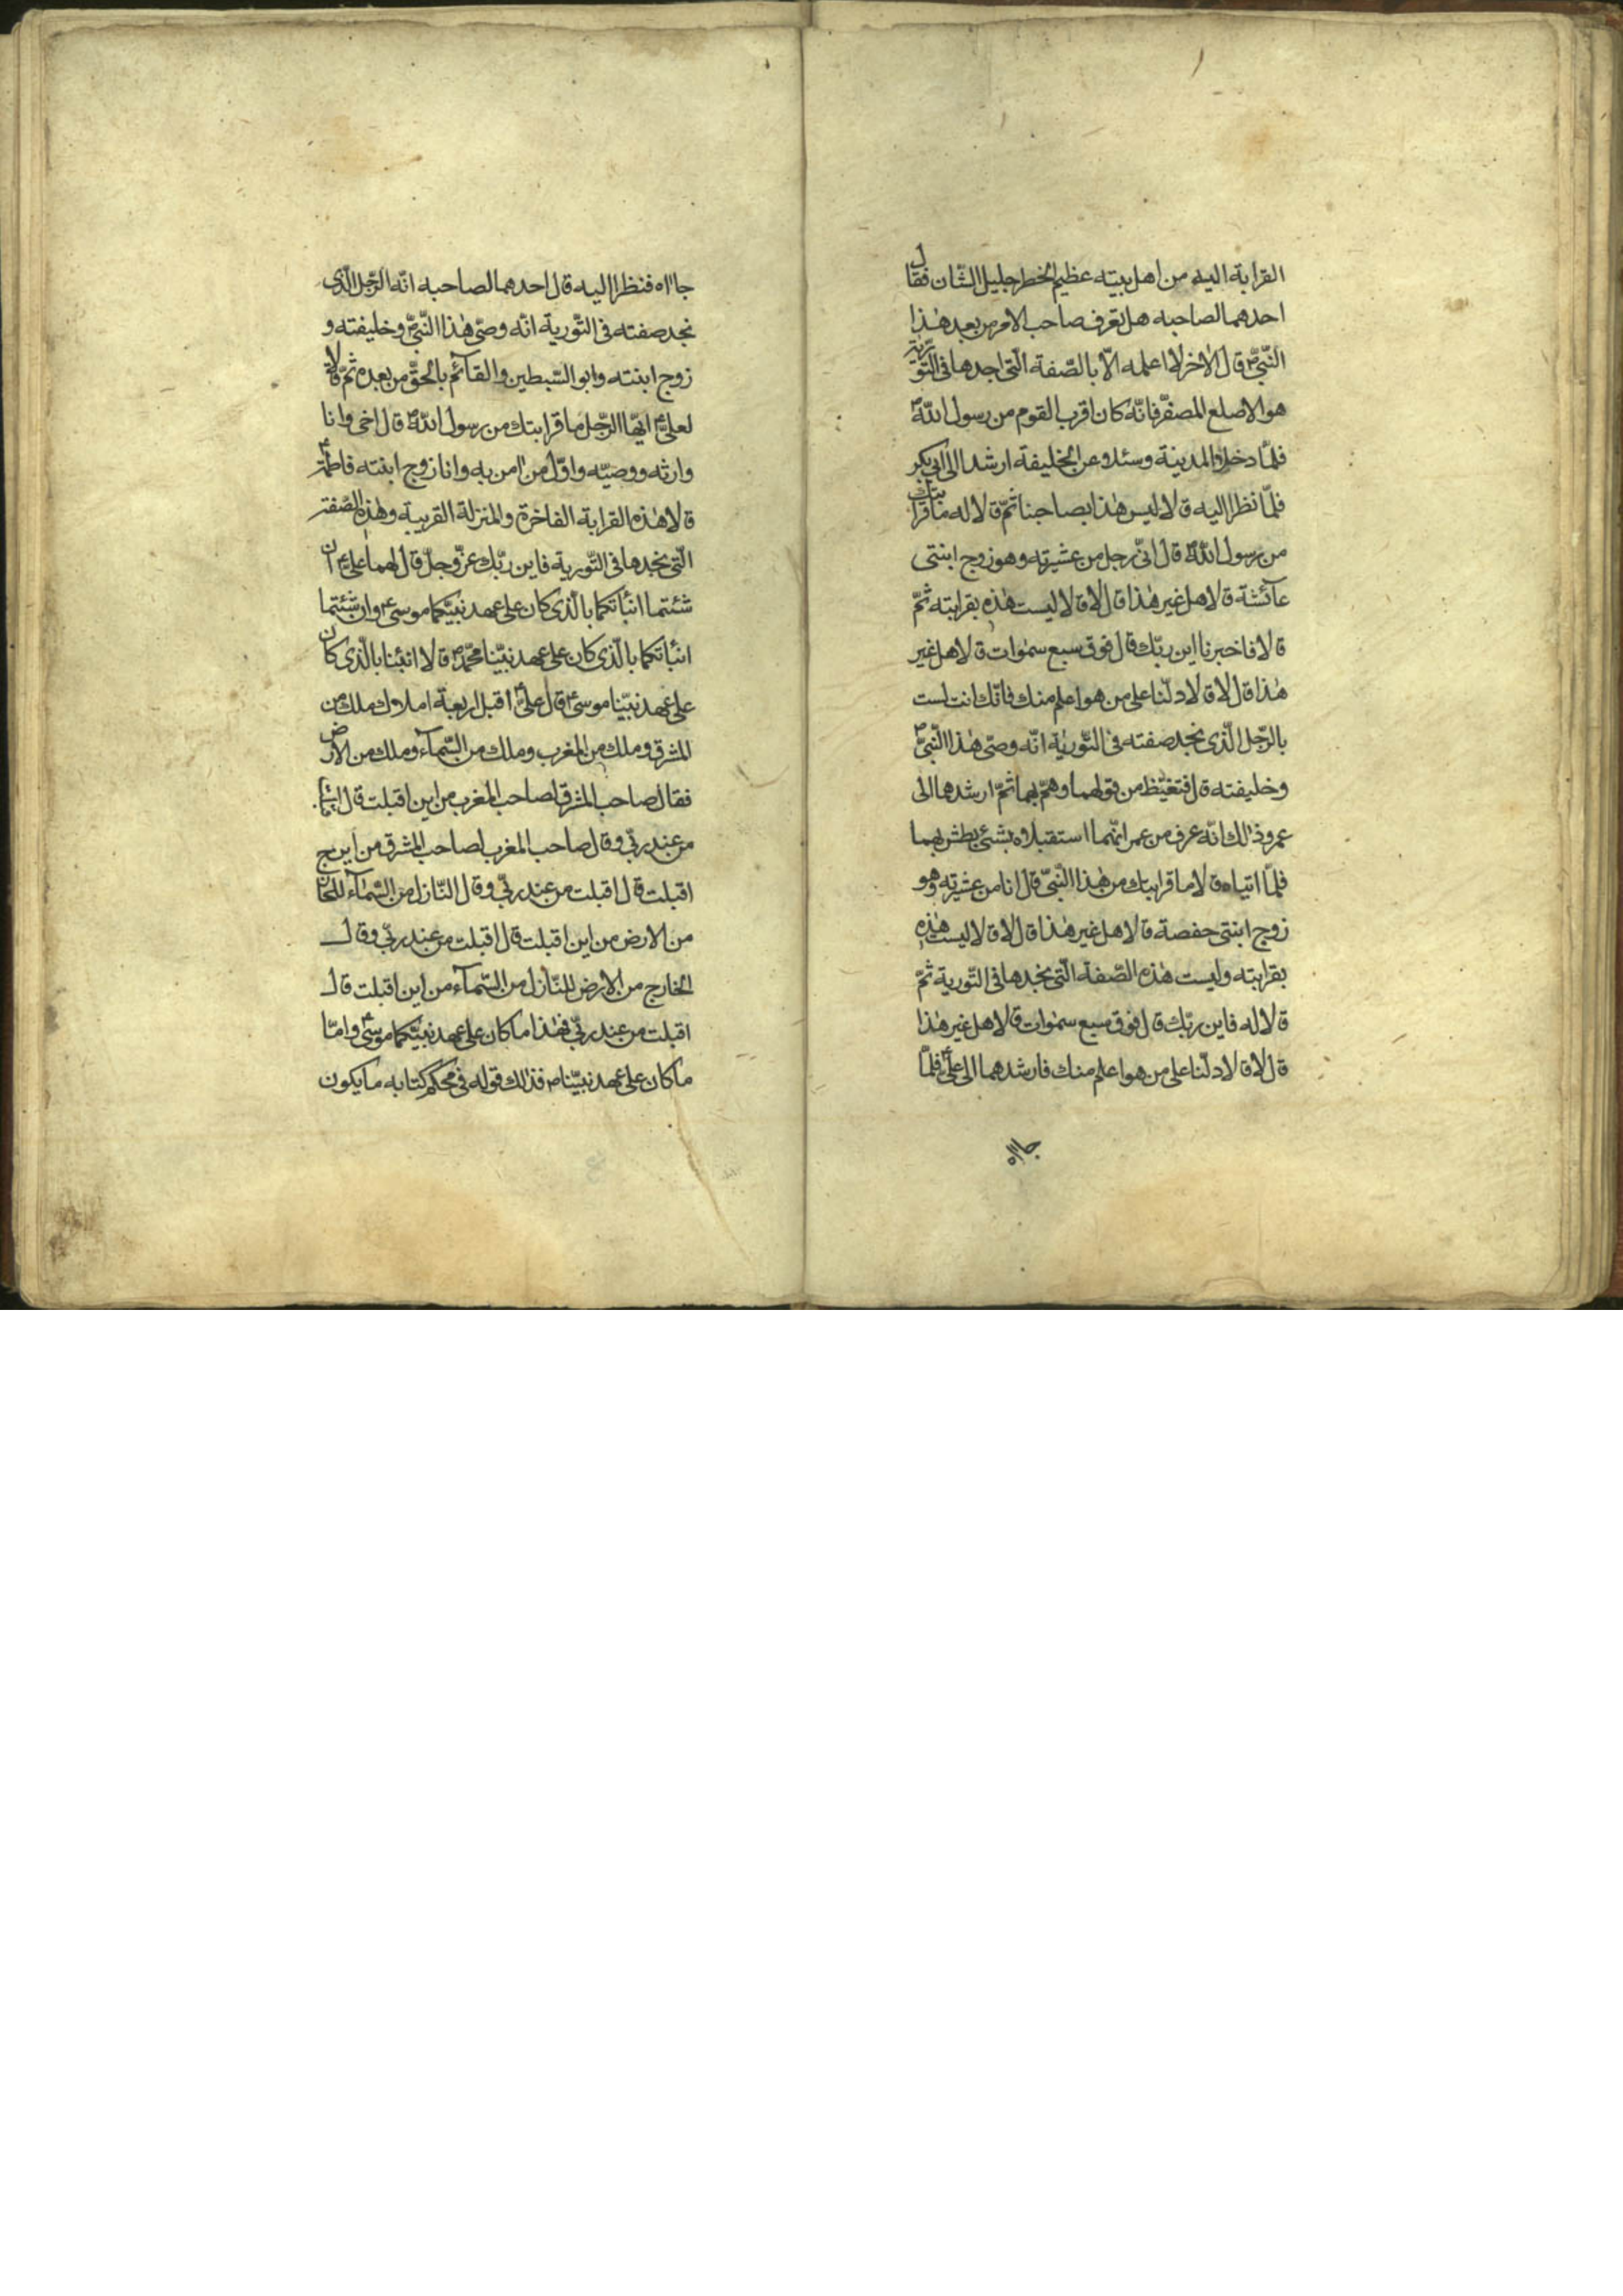 القرابة اليه من اهل بيته عظيم الخطر جليل الشّان فقال
احدهما لصاحبه هل تعرف صاحب الامر من بعد هٰذا
النّبىّ ص قال الاخر لا اعلمه الّا بالصّفة الّتى اجدها فى التّورية
هو الاصلع المصفّر فانّه كان اقرب القوم من رسول اللّه ص
فلمّا دخلا المدينة وسئلا عن الخليفة ارشدا الى ابى بكر
فلمّا نظرا اليه قالا ليس هٰذا بصاحبنا ثمّ قالا له ما قرابتك
من رسول اللّه ص قال انّى رجل من عشيرته وهو زوج ابنتى
عآئشة قالا هل غير هٰذا قال لا قالا ليست هٰذه بقرابته ثمّ
قالا فاخبرنا اين ربّك قال فوق سبع سمٰوات قالا هل غير
هٰذا قال لا قالا دلّنا على من هو اعلم منك فانّك انت لست
بالرّجل الّذى نجد صفته فى التّورية انّه وصىّ هٰذا النّبىّ ص
وخليفته قال فتغيّظ من قولهما وهمّ بهما ثمّ ارشدهما الى
عمر وذٰلك انّه عرف من عمر انّهما استقبلاه بشئ بطش بهما
فلمّا اتياه قالا ما قرابتك من هٰذا النّبىّ قال انا من عشيرته وهو
زوج ابنتى حفصة قالا هل غير هٰذا قال لا قالا ليست هٰذه
بقرابته وليست هٰذه الصّفة الّتى نجدها فى التّورية ثمّ
قالا له فاين ربّك قال فوق سبع سمٰوات قالا هل غير هٰذا
قال لا قالا دلّنا على من هو اعلم منك فارشدهما الى علىّ ع فلمّا
جااه
جااه فنظرا اليه قال احدهما لصاحبه انّه الرّجل الّذى
نجد صفته فى التّورية انّه وصىّ هٰذا النّبىّ ص وخليفته و
زوج ابنته وابو السّبطين والقآئم بالحقّ من بعده ثمّ قالا
لعلىّ ع ايّها الرّجل ما قرابتك من رسول اللّه ص قال اخى وانا
وارثه ووصيّه واوّل من امن به وانا زوج ابنته فاطمة ع
قالا هٰذه القرابة الفاخرة والمنزلة القريبة وهٰذه الصّفة
الّتى نجدها فى التّورية فاين ربّك عزّ وجلّ قال لهما علىّ ع ان
شئتما انبأتكما بالّذى كان على عهد نبيّكما موسى ع وان شئتما
انبأتكما بالّذى كان على عهد نبيّنا محمّد ص قالا انبئنا بالّذى كان
على عهد نبيّنا موسى ع قال علىّ ع اقبل اربعة املاك ملك من
المشرق وملك من المغرب وملك من السّمآء وملك من الارض
فقال صاحب المشرق لصاحب المغرب من اين اقبلت قال اقبلت
من عند ربّى وقال صاحب المغرب لصاحب المشرق من اين
اقبلت قال اقبلت من عند ربّى وقال النّازل من السّمآء للخارج
من الارض من اين اقبلت قال اقبلت من عند ربّى وقال
الخارج من الارض للنّازل من السّمآء من اين اقبلت قال
اقبلت من عند ربّى فهٰذا ما كان على عهد نبيّكما موسى ع وامّا
ما كان على عهد نبيّنا ص فذٰلك قوله فى محكم كتابه ما يكون